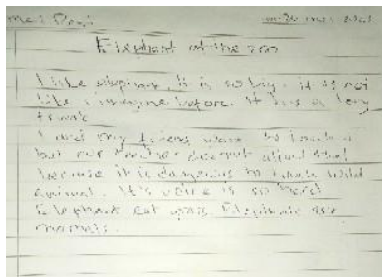 Elephant at the zoo
I like elephant, It is so big. it is not
like I imagine before. It has a long
I and my friends want to touch it
but our teacher doesn't allow that
because it is dangerous to touch wild
animal. It's voice is so hard
Elephant eat grass. Elephant are
mamals.